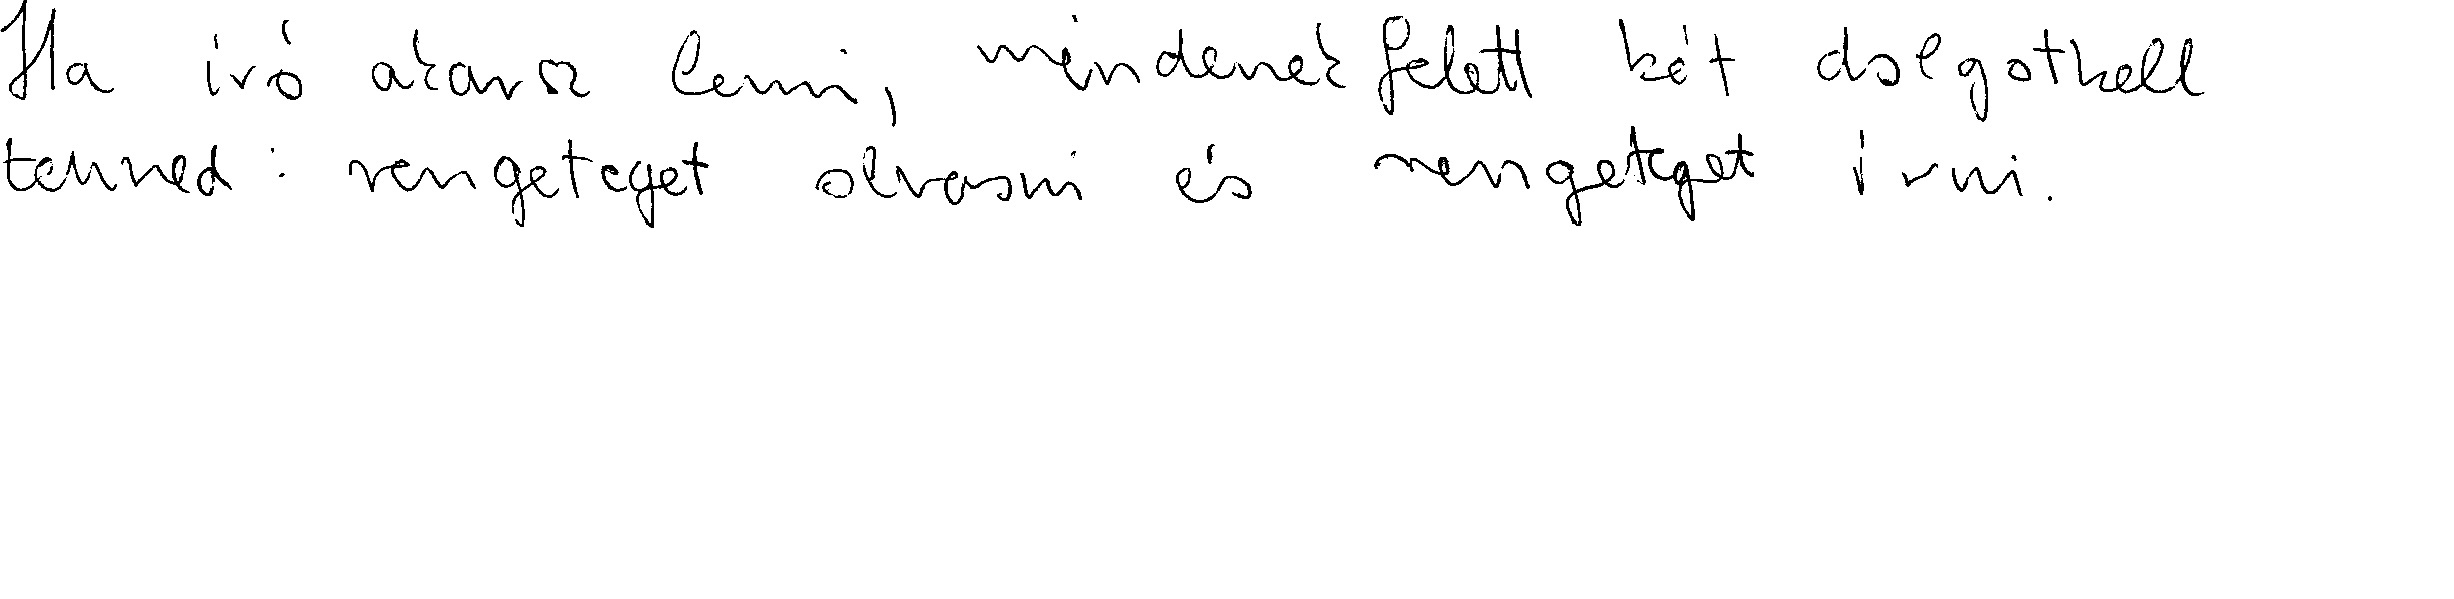 Ha író akarsz lenni, mindenek felett két dolgot kell
tenned: rengeteget olvasni és rengeteget írni.